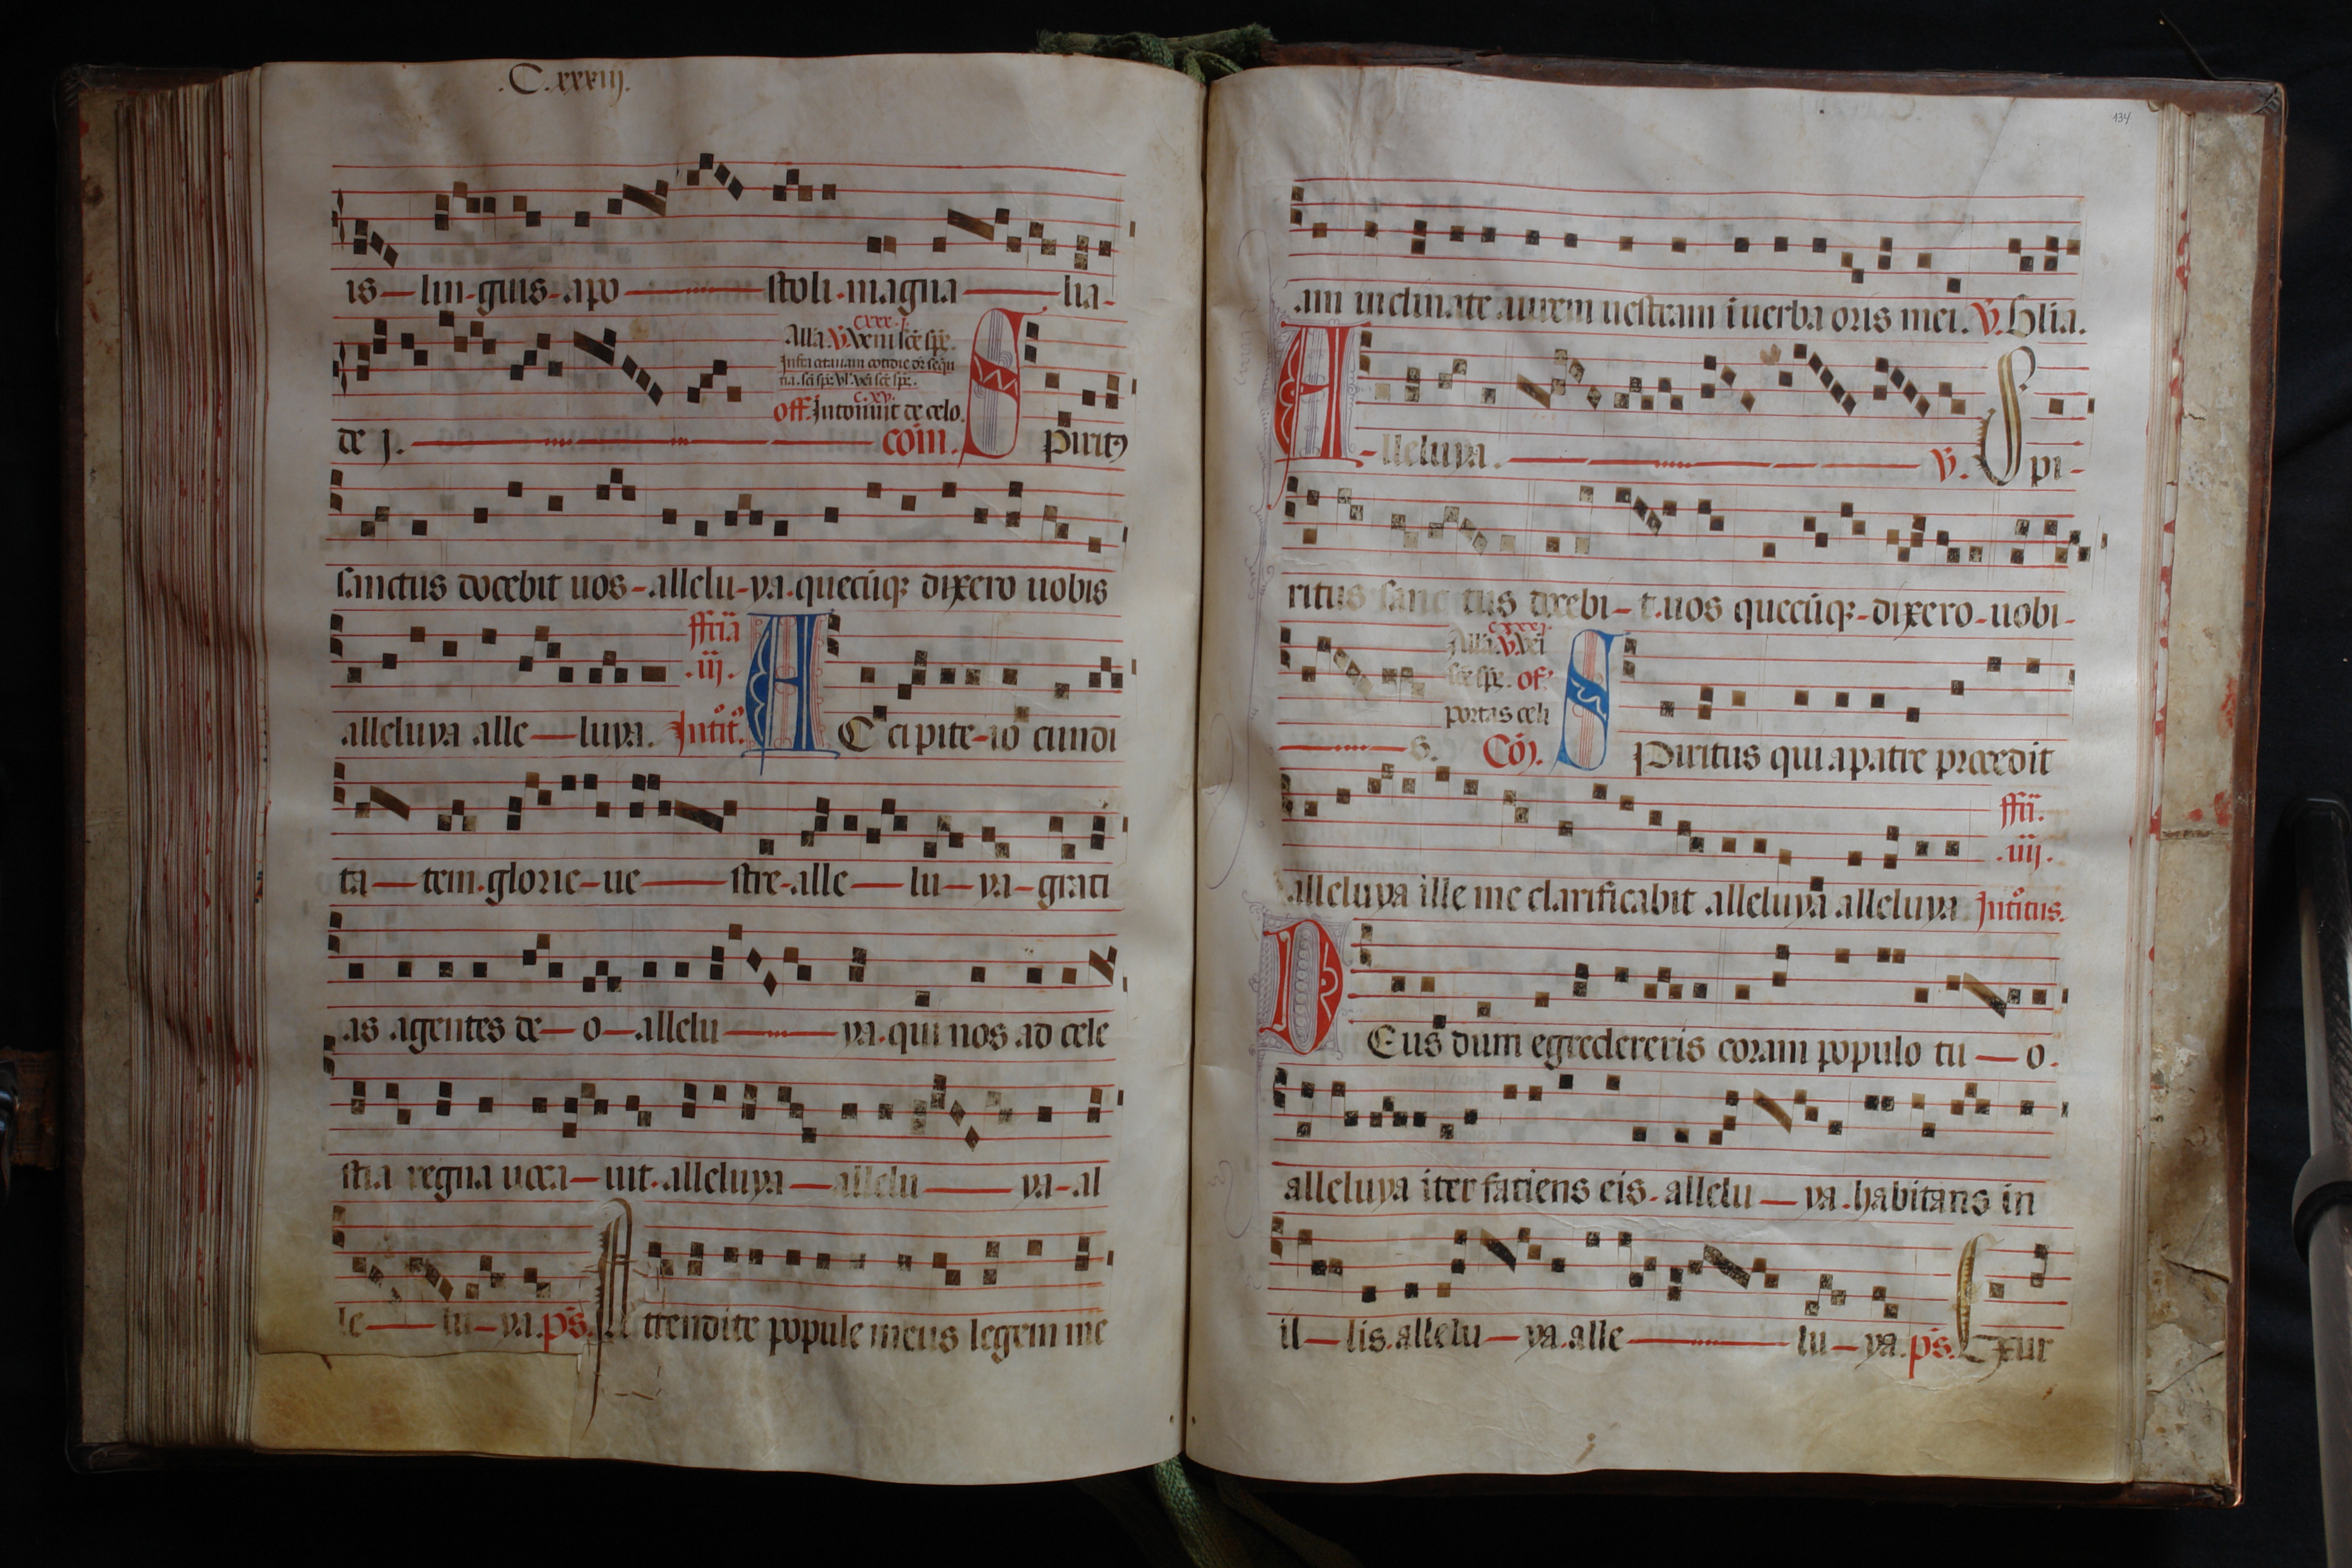 .C.xxxiij.
is-lin-guis-apo-stoli.magna-lia-
cxxx.j.
Alla.V.Veni scē spē.
Infra octauam cotidie dr̄ sequē
tia.scī spē.vl'.veī scē spē.
c.xv.
off.Intonuit de celo.
de j. com̄. Spirit9
sanctus docebit uos-allelu-ya.quecūq3 dixero uobis
ffria
.iij.
alleluya alle-luya. Intit9. ACcipite-io cundi
ta-tem.glorie-ue-stre-alle-lu-ya-grati
as agentes de-o-allelu-ya.qui nos ad cele
stia regna uoca-uit.alleluya-allelu-ya-al
le-lu-ya.ps̄. Attendite popule meus legem me
134
am inclinate aurem uestram ī uerba oris mei. V. Glia.
A-lleluya. V. Spi-
ritus sanc tus docebi-t.uos quecūq3-dixero-uobi-
cxxxj.
Alla.V.Vei
scē spē. of.
portas celi
s. Cōj. SPiritus qui a patre procedit
ffī.
.iiij.
alleluya ille me clarificabit alleluya alleluya Intitus.
DEus dum egredereris coram populo tu-o.
alleluya iter faciens eis-allelu-ya.habitans in
il-lis.allelu-ya.alle-lu-ya.ps̄. Exur